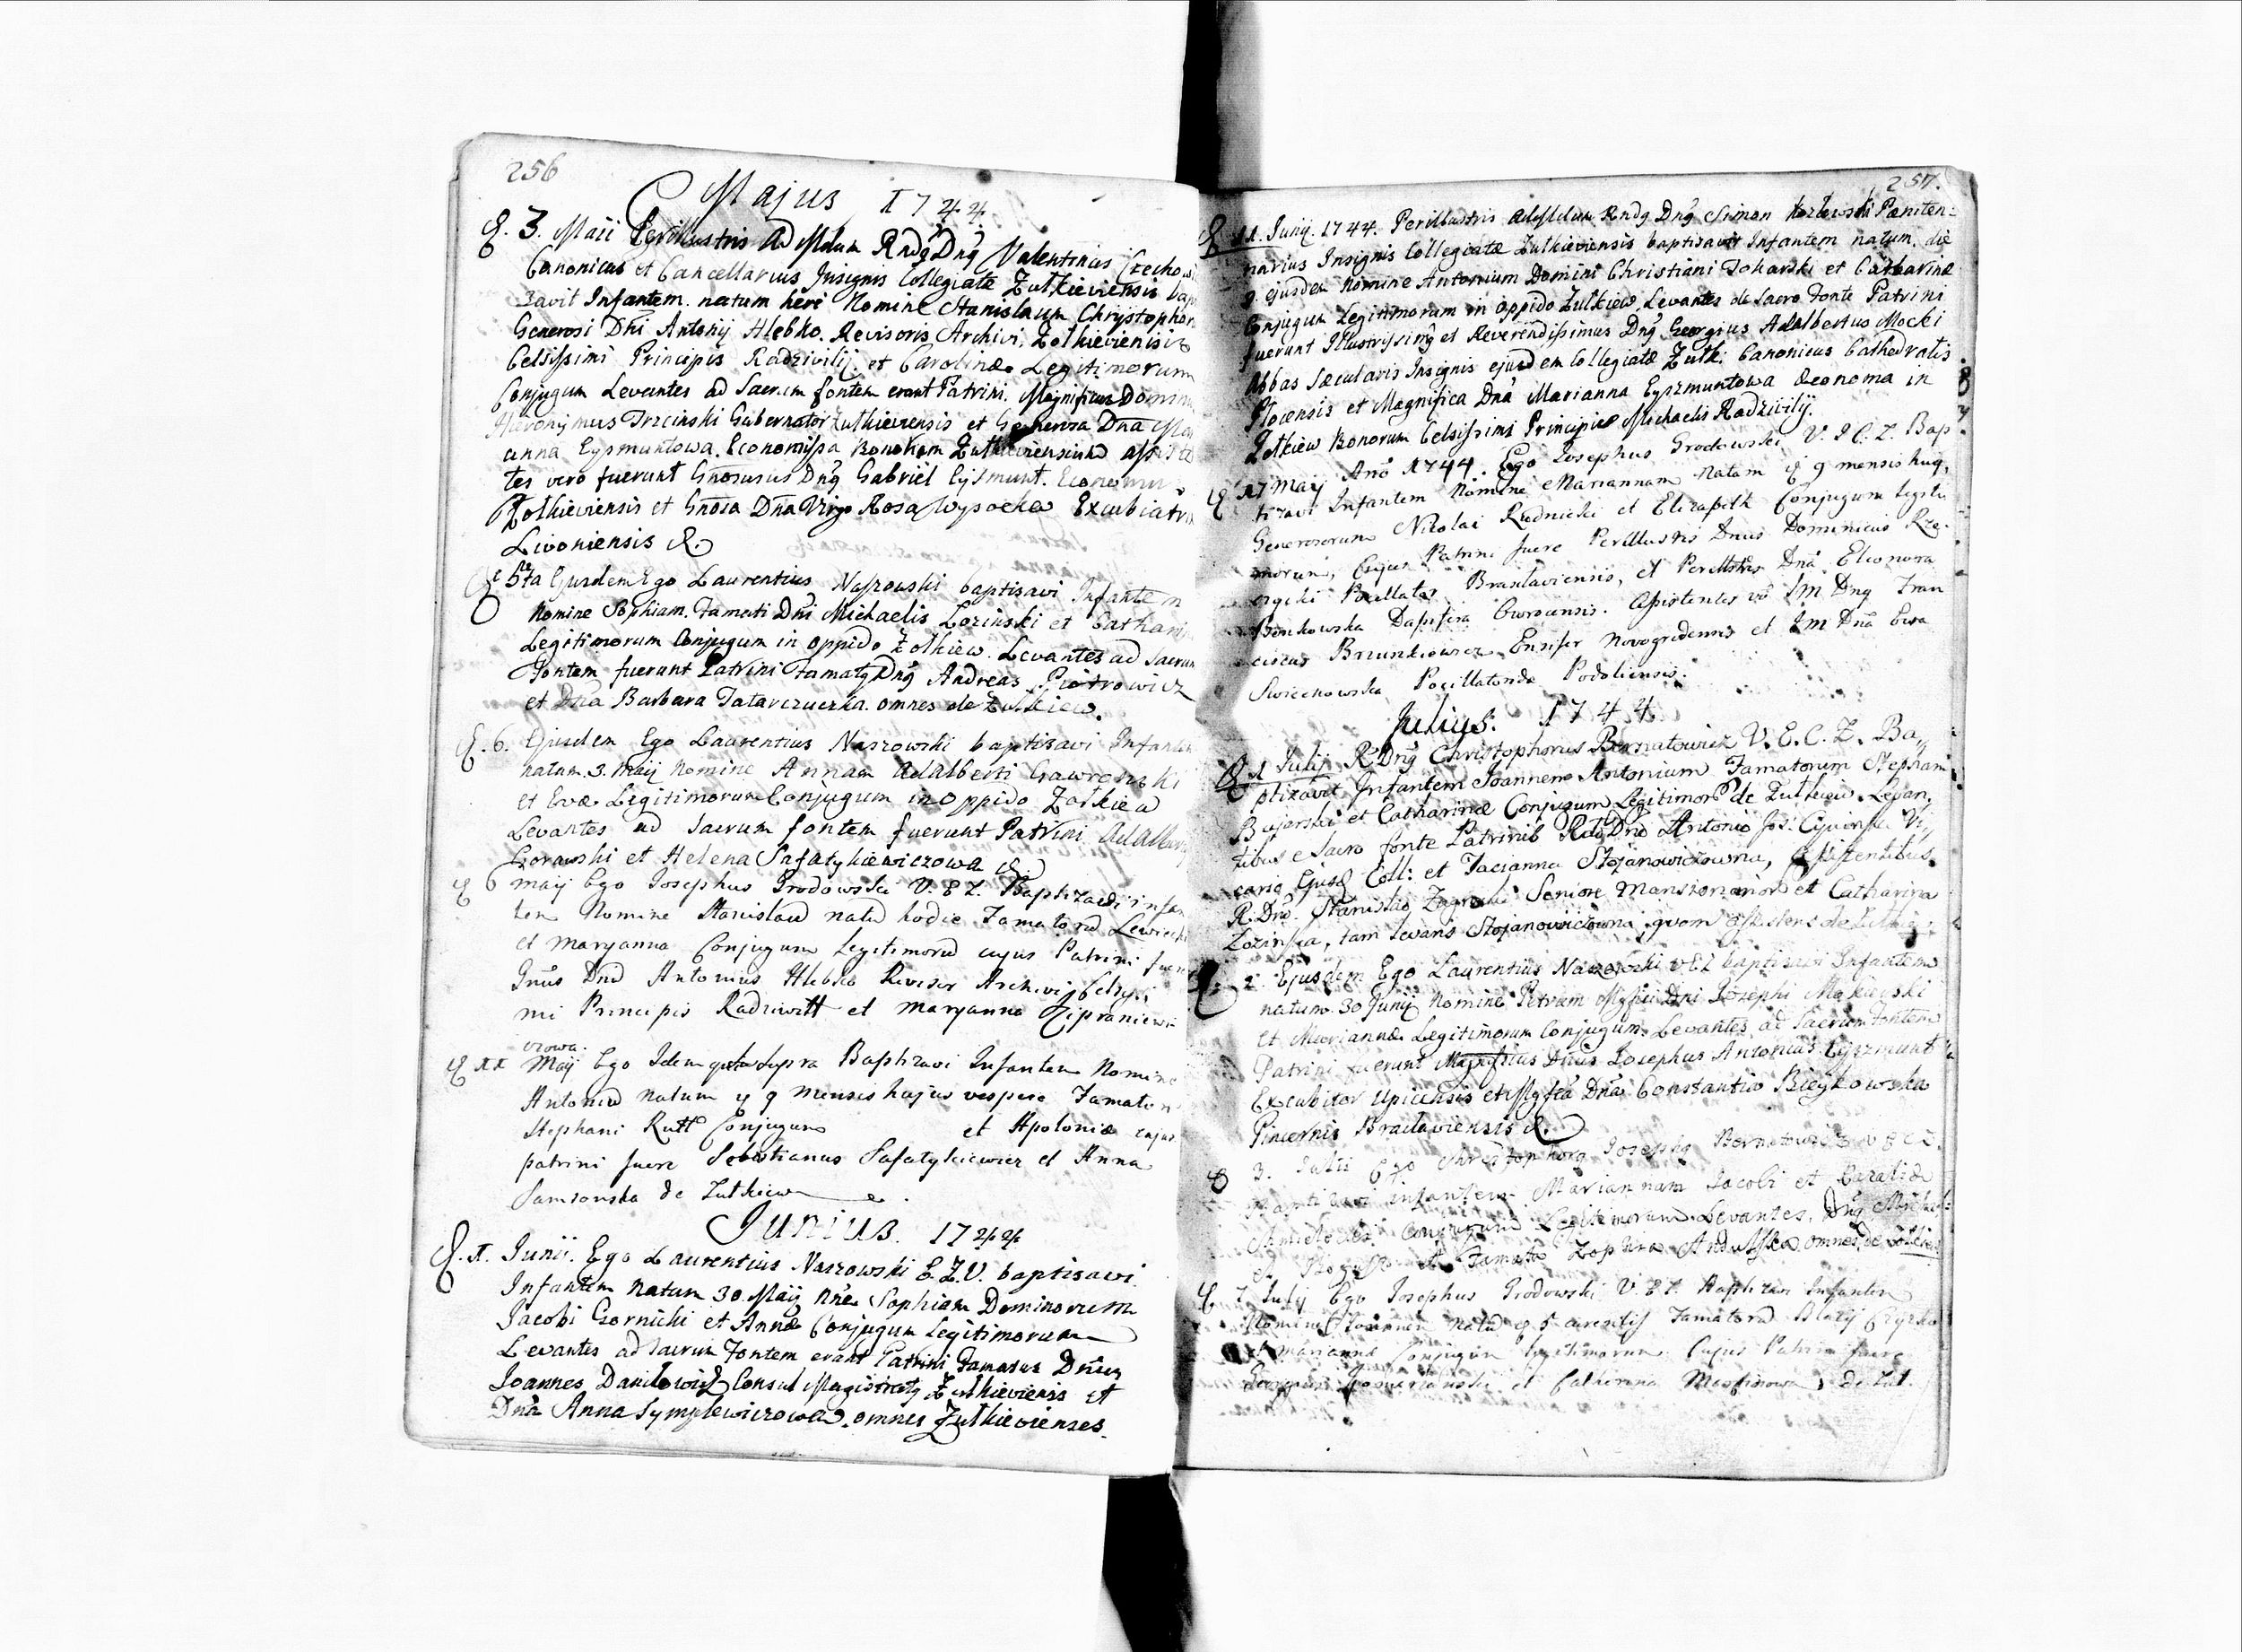 256
Majus 1744
3. Maii Perillustris Ad Mdum Rndg Dng Valentinus Czechow
Canonicus et Cancellarius Insignis Collegiatæ Zulkieviensis bap
zavit Infantem natum heri Nomine Stanislaum Chrystophor
Generosi Dni Antonij Hlebko. Revisoris Archivi Zolkieviensis
Celsissimi Principis Radzivilij et Carolinæ Legitimorum
Conjugum Levantes ad Sacrum fontem erant Patrini. Magnificus Domin
Hieronymus Trzcinski Gubernator Zulkieviensis et Generosa Dna Ma
anna Eysmuntowa. Economissa Bonorum Zulkieviensium assiste
tes vero fuerunt Gnosusus Dng Gabriel Eysmunt. Economu
Zolkieviensis et Gnosa Dna Virgo Rosa Wysocka Excubiatri
Livoniensis &.
5ta Ejusdem Ego Laurentius Naszowski baptisavi Infantem
Nomine Sophiam. Famati Dni Michaelis Lozinski et Cathari
Legitimorum Conjugum in oppido Zolkiew. Levantes ad Sacrum
Fontem fuerunt Patrini Famatg Dng Andreas Piotrowicz
et Dna Barbara Tatarczuczka. omnes de Zulkiew.
6. Ejusdem Ego Laurentius Naszowski baptisavi Infante
natam. 3. Maij Nomine Annam Adalberti Gawronski
et Evæ Legitimorum Conjugum in Oppido Zolkiew
Levantes ad Sacrum fontem fuerunt Patrini Adalber
Zorawski et Helena Safatykiewiczowa &
6 Maij Ego Josephus Grodowski V. E Z. Baptizavi infan
tem Nomine Stanislaū natū hodie Famatorū Lewicki
et Maryanna Conjugum Legitimorū cujus Patrini fuere
Gnus Dnd Antonius Hlebko Revisor Archivi Celsissi
mi Principis Radziwill et Maryanna Cipraniewi
czowa.
11 Maij Ego Idem qui supra Baptizavi Infantem Nomine
Antoniū natum 9 mensis hujus vespere Famator
Stephani Rutt Conjugum et Apoloniæ cujus
patrini fuere Sebastianus Safatykiewicz et Anna
Samsonska de Zulkiew
Junius. 1744
1. Junij. Ego Laurentius Naszowski E. Z. V. baptisavi
Infantem natam 30 Maij nne Sophiam Dominorum
Jacobi Gornicki et Annæ Conjugum Legitimorum
Levantes ad Sacrum Fontem erant Patrini Famatus Dnus
Joannes Danilowicz Consul Magistratg Zulkieviensis et
Dna Anna Symplewiczowa. omnes Zulkievienses.
257.
11. Junij. 1744. Perillustris Ad Mdum Rndg Dng Simon Kozlowski Pæniten
narius Insignis Collegiatæ Zulkieviensis baptisavit Infantem natum. die
9. ejusdem Nomine Antonium Domini Christiani Tokarski et Catharinæ
Conjugum Legitimorum in oppido Zulkiew. Levantes de Sacro Fonte Patrini
fuerunt Illustrissimg et Reverendissimus Dng Georgius Adalbertus Mocki
Abbas Sæcularis Insignis ejusdem Collegiatæ Zulk: Canonicus Cathedralis
Plocensis et Magnifica Dna Marianna Eyszmuntowa Œconoma in
Zolkiew Bonorum Celsissimi Principis Michaelis Radzivilij.
17 Maij Ano 1744. Ego Josephus Grodowski V. E C. Z. Bap
tizavi Infantem Nomine Mariannam natam 9 mensis hujg
Generosorum Nicolai Rudnicki et Elizabeth Conjugum legiti
morum, Cujus Patrini fuere Perillustris Dnus Dominicus Rze
Pocillator Braslaviensis, et Perillstris Dna Eleonora
Dapifera Owrocensis. Assistentes vō Im Dng Fran
ciscus Ensifer Novogrodensis et Im Dna Ewa
Swiecnowska Pocillatonda Podoliensis.
Julius. 1744
1 Julij R Dng Christophorus Bernatowicz V. E. C. Z. Ba,
ptizavit Infantem Joannem Antonium Famatorum Stephani
et Catharinæ Conjugum Legitimor de Zulkiew. Levan,
tibus e Sacro fonte Patrinis Rdo Dno Antonio Jos: Vi,
cario Ejusd Coll: et Tacianna Stojanowiczowna, Assistentibus
R. Dno. Stanislao Seniore Mansionarior et Catharina
Lozinska, tam levans Stojanowiczowna, quam assistens de Zulkiew
2. Ejusdem Ego Laurentius Naszowski V E Z baptisavi Infantem
natum. 30 Junij Nomine Petrum Mgfici Dni Josephi Makowski
et Mariannæ Legitimorum Conjugum. Levantes ad Sacrum Fontem
Patrini fuerunt Magnificus Dnus Josephus Antonius Eyszmunt
Excubitor Upicensis et Mgfca Dna Constantia Bieykowska
Pincernis Bracłaviensis &.
3. Julii Ego Josephg Bernatowicz V E C Z.
Baptizavi infantem Mariannam Jacobi et
Conjugum Legitimorum. Levantes. Dng
et Famata Zophia omnes de Zolkiew
7 Julij Ego Josephus Grodowski V. E Z. Baptizavi Infantem
Nomine Joannem natū 5 Famatorū
Mariannæ Conjugum legitimorum. Cujus Patrini fuere
Georgius et Catherina de Zul.